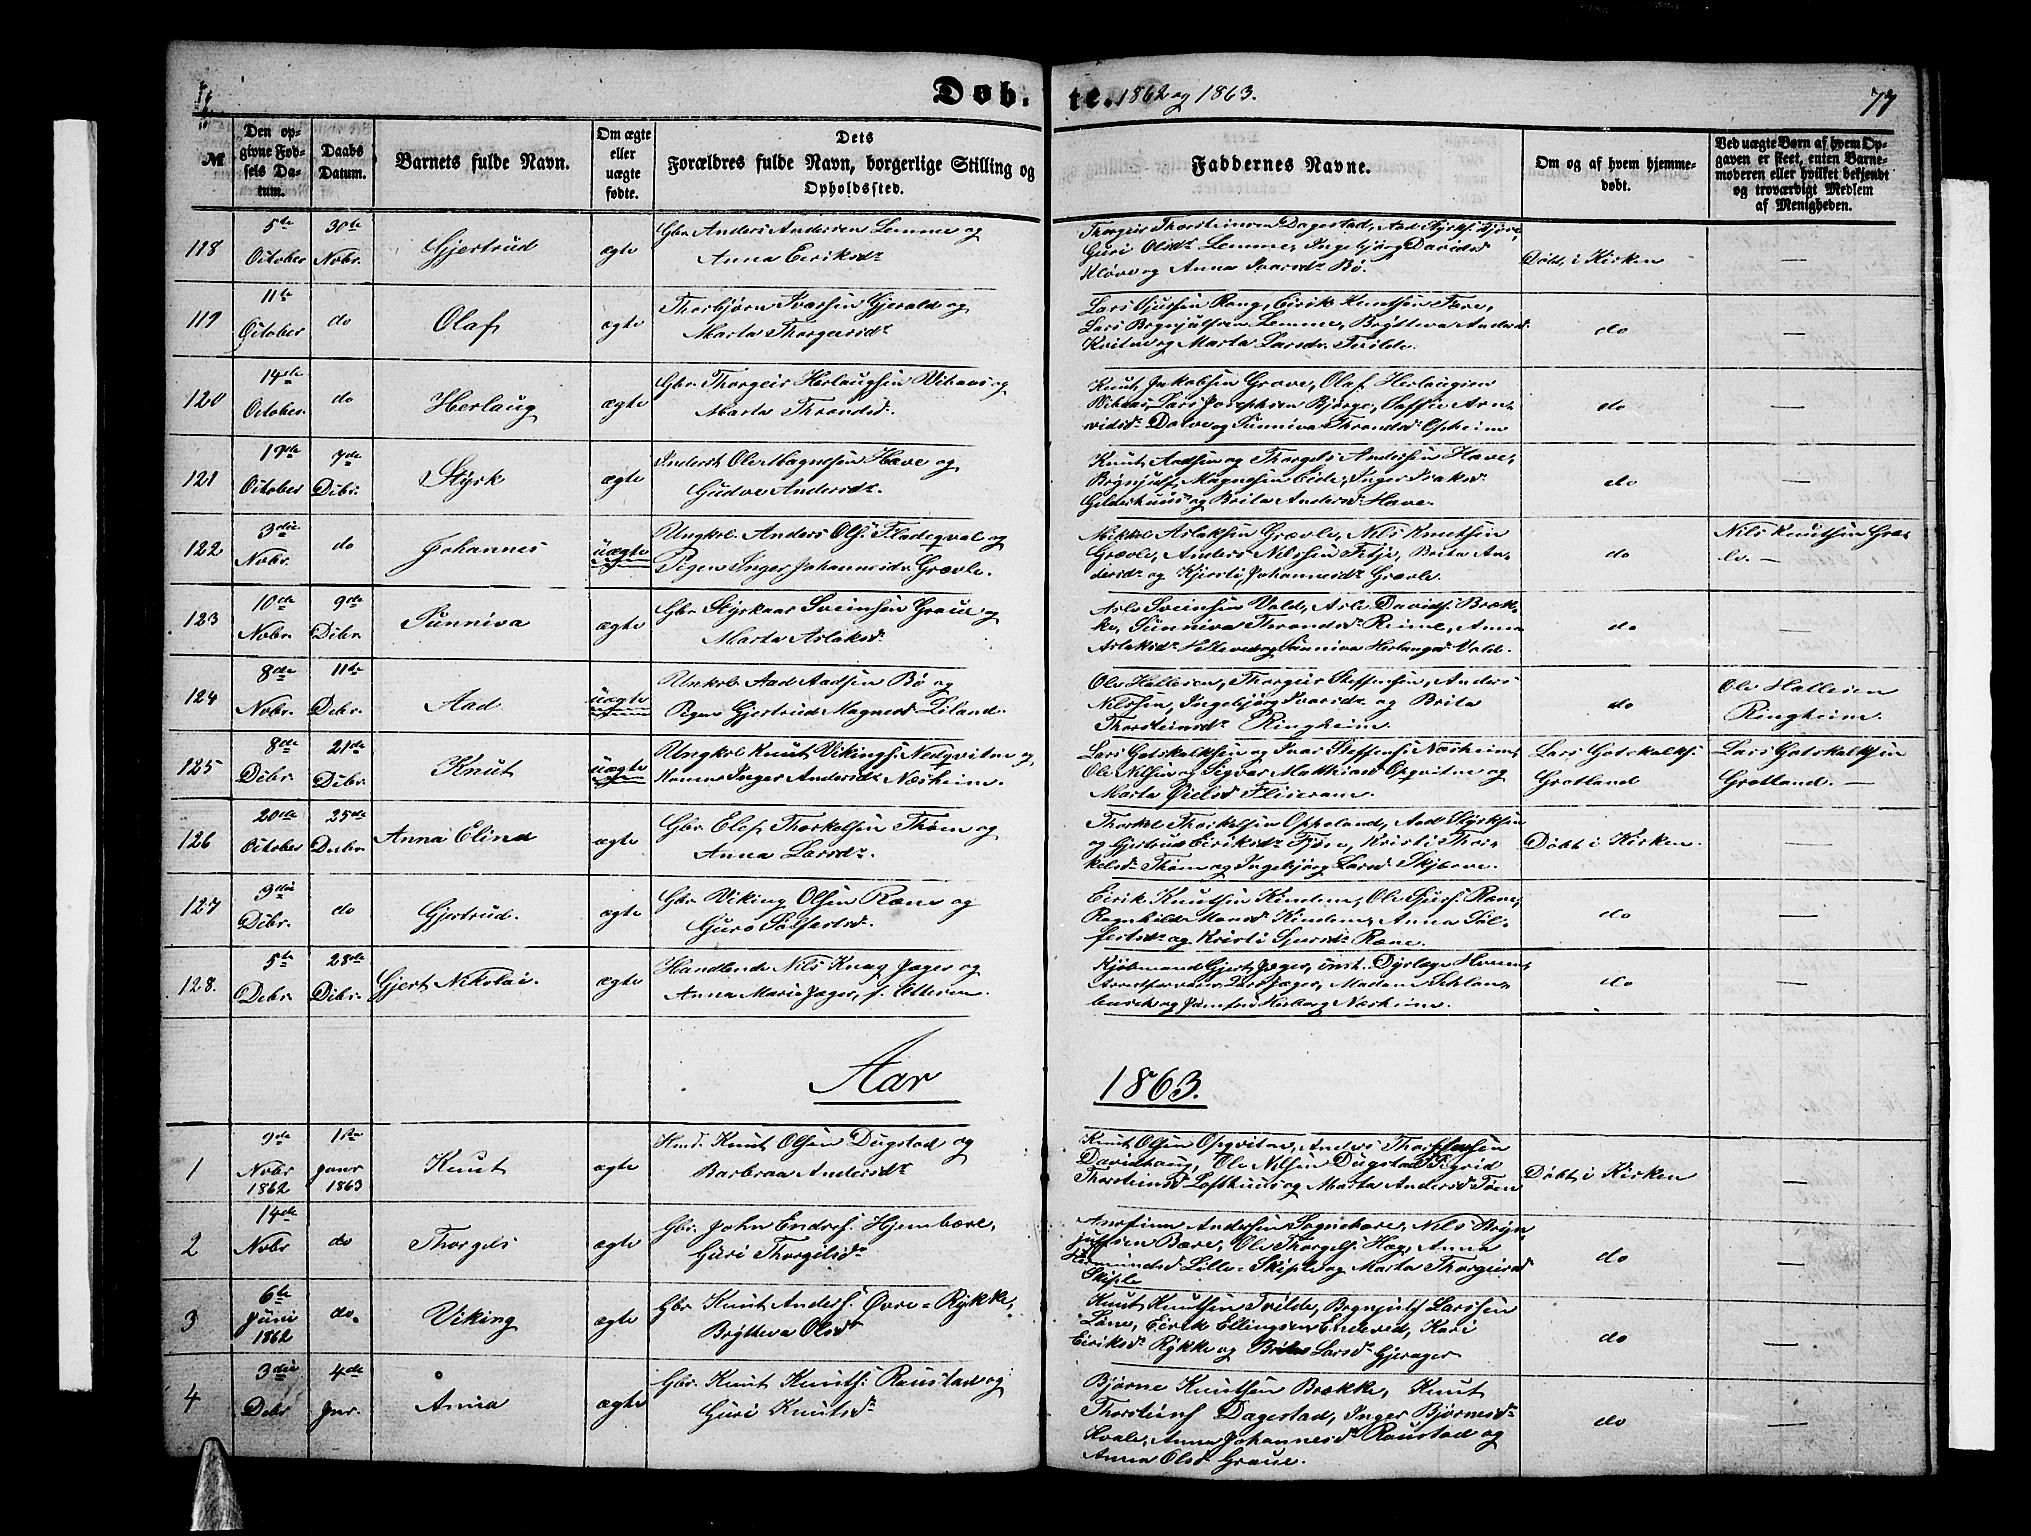 Døb.
te. 1862 og 1863.
77
№
Den op-
givne Fød-
sels Da-
tum.
Daabs
Datum.
Barnets fulde Navn.
Om ægte
eller
uægte
fødte.
Dets
Forældres fulde Navn, borgerlige Stilling og
Opholdssted.
Faddernes Navne.
Om og af hvem hjemme-
døbt.
Ved uægte Børn af hvem Op-
gaven er skeet, enten Barne-
moderen eller hvilket bekjendt
og troværdigt Medlem
af Menigheden.
118
5te
October
30te
Nobr.
Gjertrud
ægte
Gbr. Anders Andersen Lemme og
Anna Eeriksdr
Thorgeir Thorsteinsen Dagestad, Aad Styrks.
Guri Olsdr Lemme, Ingebjørg Davidsd
Kløve og Anna Ivarsdr Bø.
Døbt i Kirken
—
119
11te
October
do
Olaf
ægte
Thorbjørn Ivarsen Gjerald og
Marta Thorgersdr
Lars Sjursen Rong, Eirik Knutsen Tære,
Lars Brynjulfsen Lemme, Brytteva Andersd
Kvitne og Marta Larsdr. Tvilde.
do
—
120
14de
October.
do
Herlaug
ægte
Gbr. Thorgeir Herlaugsen Vikaas og
Marta Throndsd.
Knut Jakobsen Grove, Olaf Herlaugsen
Vikaas, Lars Josephsen Bjørge, Arn-
vidsd. og Sunniva Throndsd Opheim
do
—
121
19de
October
7de
Dibr.
Styrk
ægte
Inderst Ole Magnesen Have og
Gudve Andersdr.
Knut Aadsen og Thorgels Andersen Have,
Brynjulf Magnesen Eide, Inger Isaksd
Gilderhuus og Brita Andersd Have.
do
—
122
3die
Nobr.
do
Johannes
uægte
Ungkrl. Anders Ols. Fladeqval og
Pigen Inger Johannesdr Grævle.
Mikkel Aslaksen Grævle, Nils Knutsen
Grævle, Anders Nilssen Fitje, Brita An-
dersdr og Kjersti Johannesdr Grævle.
do
Nils Knutsen Græv-
le. —
123
10de
Nobr.
9de
Dibr.
Sunniva
ægte
Gbr. Styrkaar Sveinsen Graue og
Marta Aslaksd.
Arle Sveinsen Vold, Arle Davids. Bræk-
ke, Sunniva Throndsd. Reime, Anna
Aslaksdr og Sunniva Herlaugsd Vold.
do
—
124
8de
Nobr.
11te
Debr.
Aad
uægte
Ungkrl. Aad Aadsen Bø og
Pigen Gjertrud Magnesd Liland.
Ole Hallesen, Thorgeir Steffensen, Anders
Nilssen, Ingebjørg Ivarsdr og Brita
Thorsteinsdr Ringheim.
do
Ole Hallesen
Ringheim.
125
8de
Dibr.
21de
Dibr.
Knut
uægte
Ungkrl Knut Vikings. Nedqvitne og
Konen Inger Andersdr Næsheim.
Lars Gotskalksen og Ivar Steffens. Næsheim,
Ole Nilsen og Sigvar Matthiasd Opqvitne og
Marta
Lars Gotskalks.
Grotland
Lars Gotskalksen
Grotland. —
126
20de
October
25de
Decbr.
Anna Elina
ægte
Gbr Elef Thorkelsen Thøm og
Anna Larsdr.
Thorkel Thorkelsen Opheland, Aad Styrksen
og Gjertrud Eiriksdr Tjøne, Kristi Thor-
kelsdr Thøm og Ingebjørg Larsd Skjerve.
Døbt i Kirken.
—
127
3die
Dibr.
do
Gjertrud.
ægte
Gbr Viking Olsen Ræne og
Guro Sølfestsd.
Eirik Knutsen Kindem, Ole Sjurs. Ræne,
Ragnhilda Monsd Kindem, Anna Søl-
festsdr og Kristi Sjursdr Ræne.
do
—
128.
5te
Debr.
28de
Dibr.
Gjert Nikolai.
ægte
Handlende Nils Knag Jæger og
Anna Marie Jæger, f.
Kjøbmand Gjert Jæger,
Jæger, Madam
og Jomfru Næsheim.
do
—
Aar
1863.
1
9de
Nobr
1862
1ste
Janr
1863
Knut
ægte
Hmd. Knut Olsen Dugstad og
Barbraa Andersdr
Knut Olsen Opqvitne, Anders Thorsteinsen
Davidhaug, Ole Nilsen Dugstad, Sigrid
Thorsteinsd Lofthuus og Marta Andersd Tøen
Døbt i Kirken
—
2
14de
Nobr
do
Thorgels
ægte
Gbr. John Endres. Hjembære,
Guri Thorgilsdr
Andersen Sagnebære, Nils Bryn-
julfsen Bære, Ole Thorgels. Hæg, Anna
Lille-Skiple og Marta Thorgeirsd
Skiple
do
—
3
6te
Juni
1862
do.
Viking
ægte
Gbr. Knut Anders. Øvre-Rykke,
Brytteva Olsdr
Knut Knutsen Tvilde, Brynjulf Larssen
Løne, Eirik Ellingsen Enderud, Kari
Eiriksdr Rykke og Brita Larsd. Gjerager
do
—
4
3die
Debr
4de
Jnr.
Anna
ægte
Gbr. Knut Knuts. Raustad og
Guri Knutsdr
Bjørne Knutsen Brække, Knut
Thorsteins Dagestad, Inger Bjørnesdr
Hvale, Anna Johannesdr Raustad og
Anna Olsd Graue.
do
—